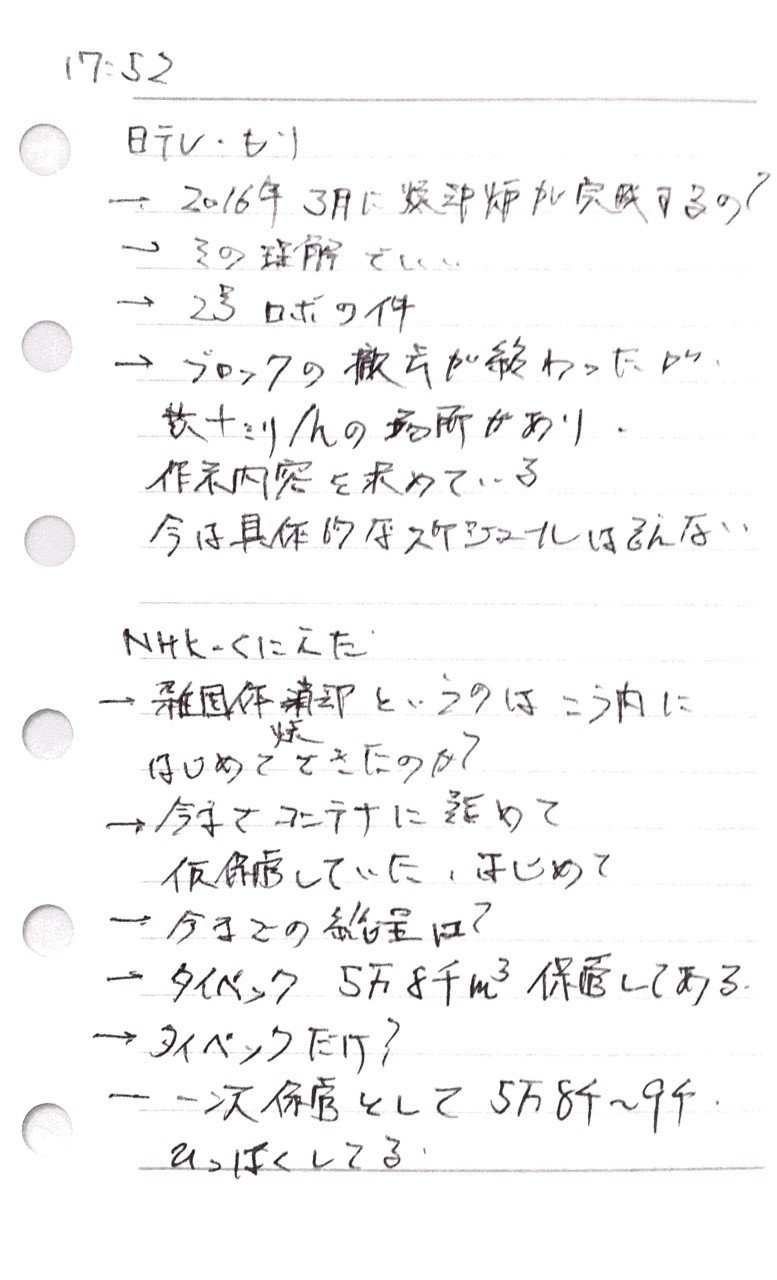 17:52
日テレ・もり
→ 2016年3月に焼却炉が完成するの?
→ その理解でいい
→ 2号ロボの件
→ ブロックの撤去が終わったが、
数十ミリ/hの場所があり、
作業内容を求めている
今は具体的なスケジュールは言えない
NHK-くにえだ
→ 雑固体焼却というのはこう内に
はじめてできたのか?
→ 今までコンテナに詰めて
仮保管していた、はじめて
→ 今までの総量は?
→ タイベック 5万8千m³ 保管してある
→ タイベックだけ?
— 一次保管として 5万8千~9千.
ひっぱくしてる.